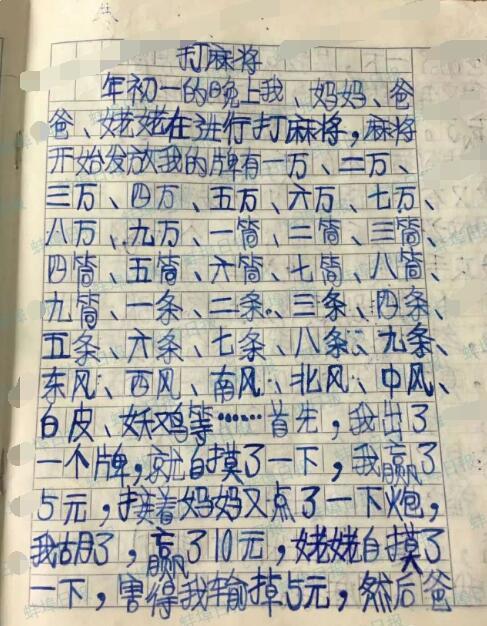 打麻将
年初一的晚上我、妈妈、爸
爸、姥姥在进行打麻将，麻将
开始发放我的牌有一万、二万、
三万、四万、五万、六万、七万、
八万、九万、一筒、二筒、三筒、
四筒、五筒、六筒、七筒、八筒、
九筒、一条、二条、三条、四条、
五条、六条、七条、八条、九条、
东风、西风、南风、北风、中风、
白皮、妖鸡等……首先，我出了
一个牌，就自摸了一下，我赢了
5元，接着妈妈又点了一下炮，
我胡了，赢了10元，姥姥自摸了
一下，害得我输掉5元，然后爸